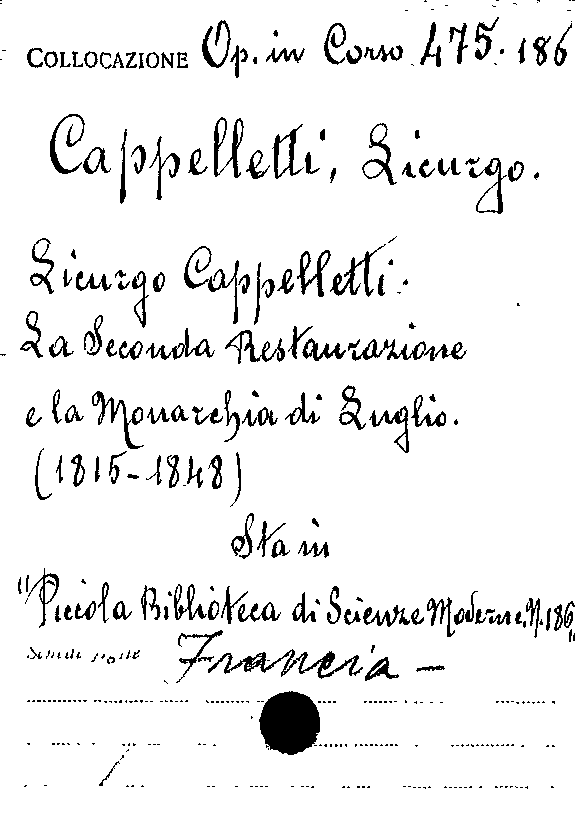 COLLOCAZIONE Op. in Corso 475. 186
Cappelletti, Licurgo.
Licurgo Cappelletti.
La Seconda Restaurazione
e la Monarchia di Luglio.
(1815-1848)
Sta in
"Piccola Biblioteca di Scienze Moderne. N. 186"
Francia -